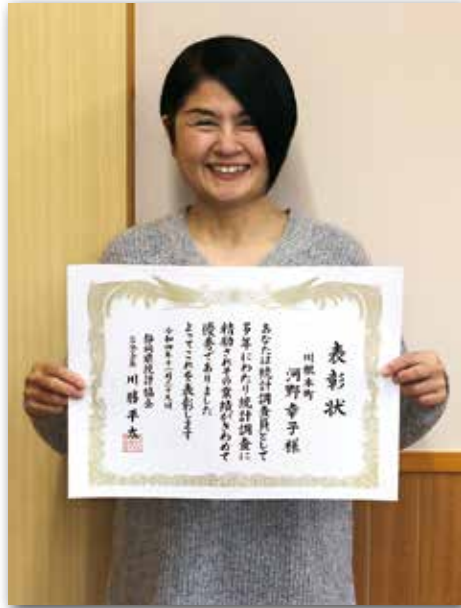 表彰状
川根本町
河野幸子様
あなたは統計調査員として
多年にわたり統計調査に
精励されその業績がきわめて
優秀でありました
よってこれを表彰します
令和四年十一月
静岡県統計協会
川勝平太